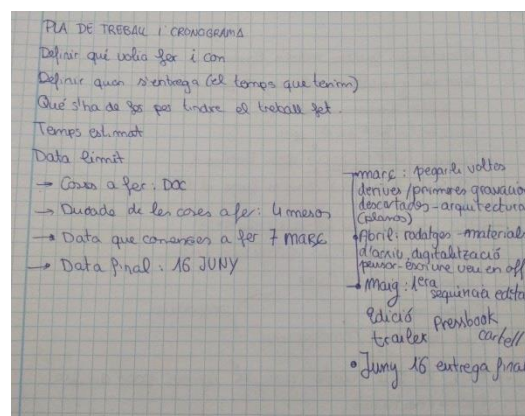 PLA DE TREBALL I CRONOGRAMA
Definir què volia fer i con
Definir quan s'entrega (el temps que tenim)
Què s'ha de fer per tindre el treball fet.
Temps estimat
Data límit
→ Coses a fer: DOC
→ Durada de les coses a fer: 4 mesos
→ Data que comenses a fer 7 MARÇ
→ Data final: 16 JUNY
març: pegarli voltes
derives/primeres gravacio
descartados-arquitectura
(planos)
Abril: rodatges-material
d'arxiu, digitalització
pensar-escriure veu en off
→ Maig: 1era
sequència edita
Edició
trailer
Pressbook
cartell
• Juny 16 entrega final